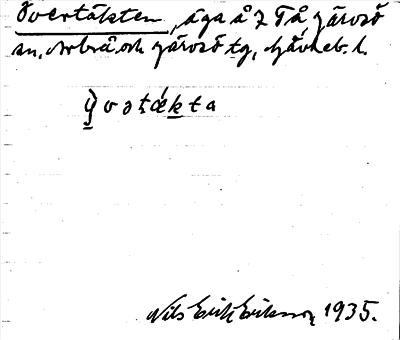 Övertäkten, äga å 2 Tå, Järvsö
sn, Arbrå och Järvsö tg, Gävleb. l.
ỳ̱vətækta
Nils Erik Eriksson 1935.